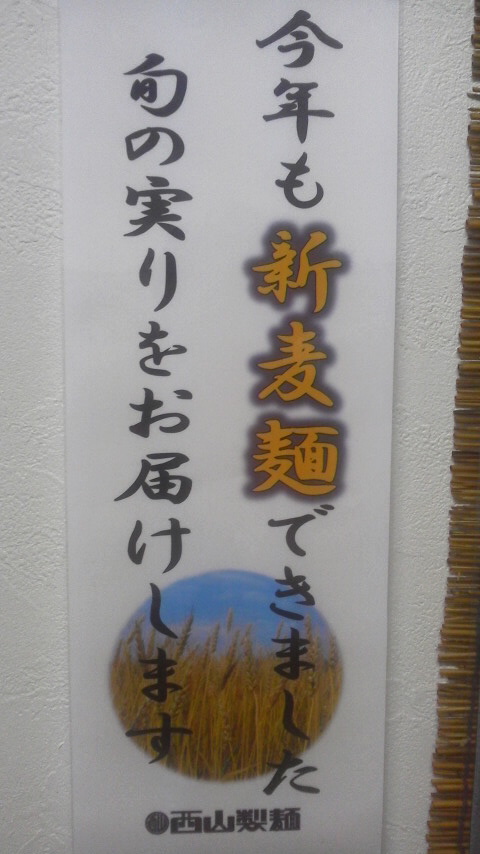 今年も新麦麺できました
旬の実りをお届けします
西山製麺